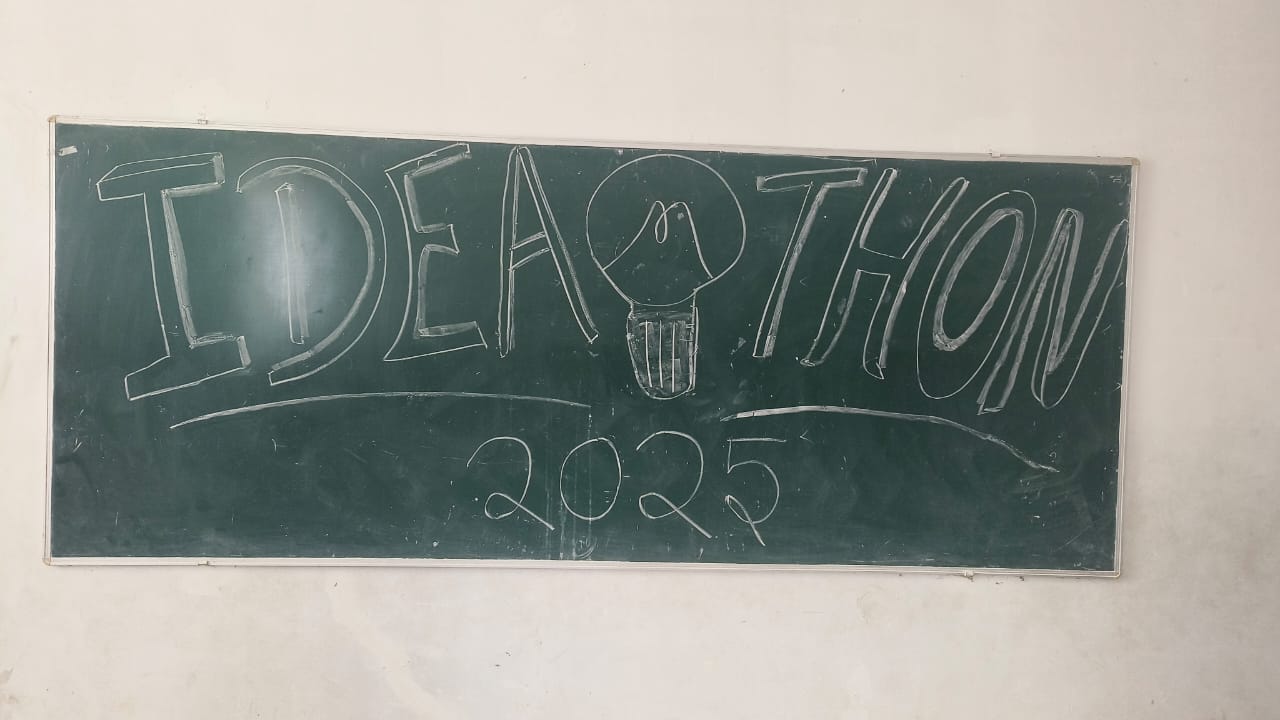 IDEA THON
2025